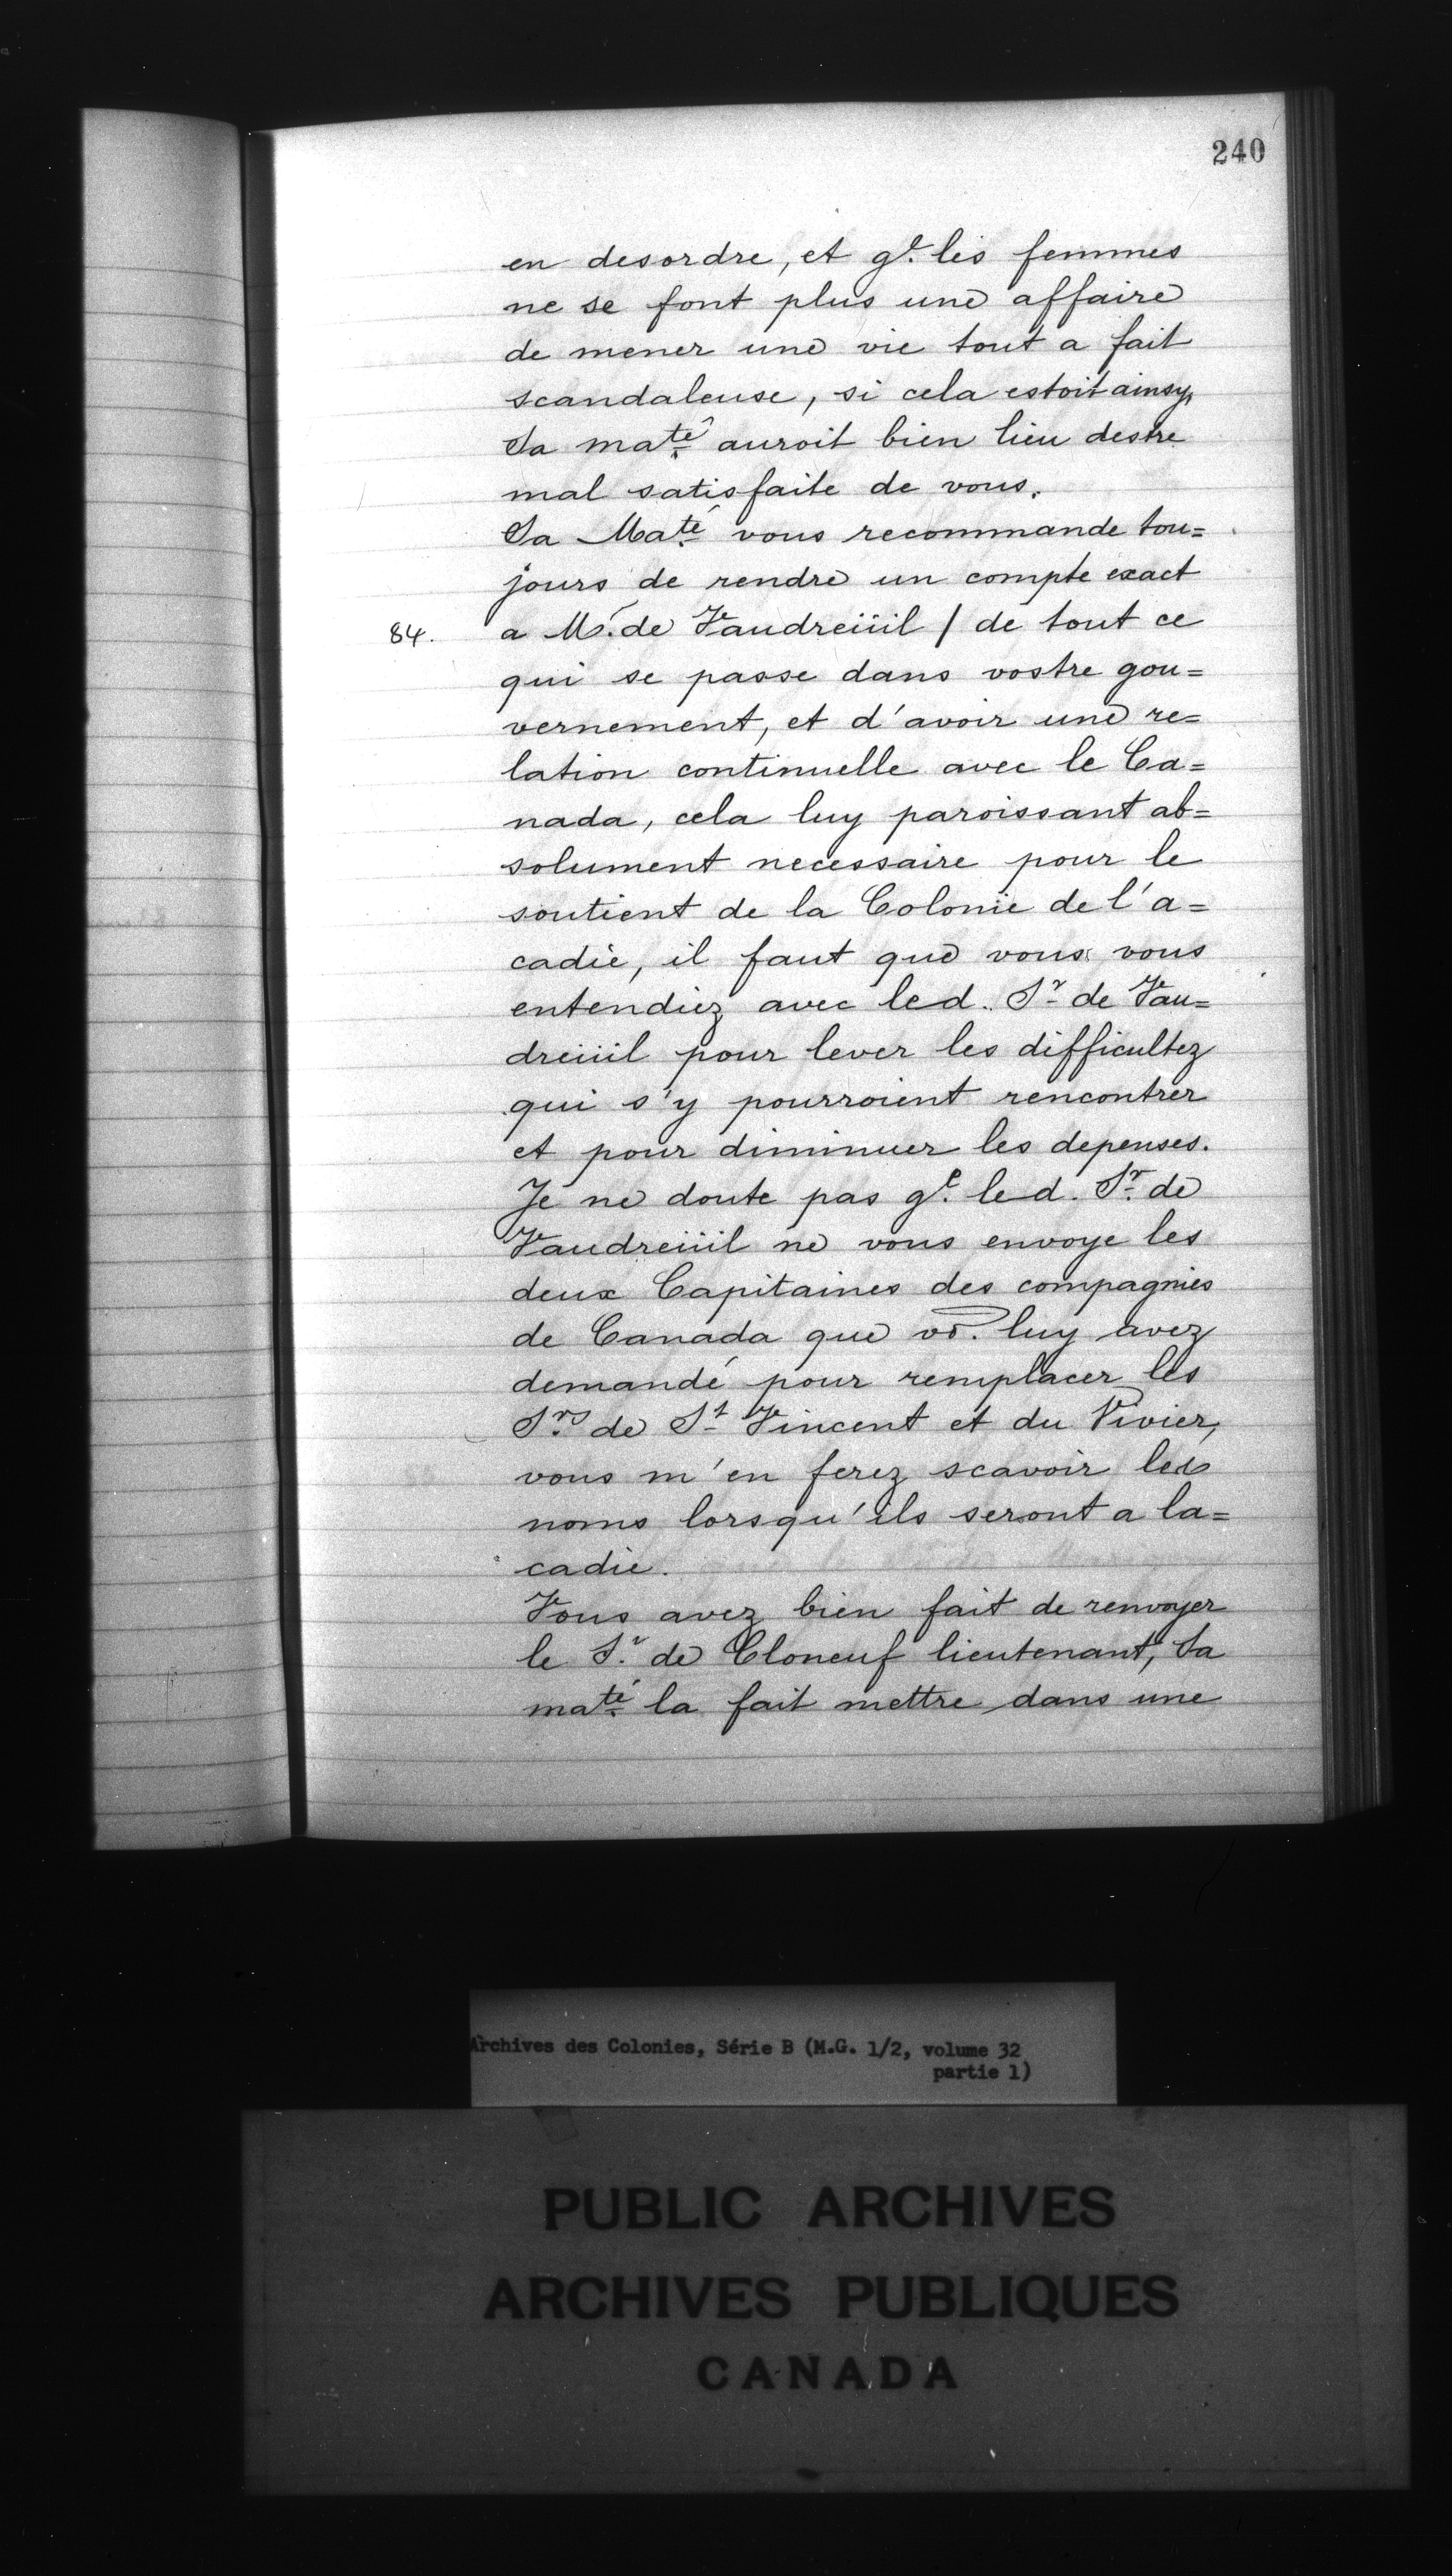 240
en desordre, et q.e les femmes
ne se font plus une affaire
de mener une vie tout a fait
scandaleuse, si cela estoit ainsy,
Sa maté auroit bien lieu destre
mal satisfaite de vous.
Sa Maté vous recommande tou=
jours de rendre un compte exact
84. a Mr. de Vaudreüil / de tout ce
qui se passe dans vostre gou=
vernement, et d'avoir une re=
lation continuelle avec le Ca=
nada, cela luy paroissant ab=
solument necessaire pour le
soutient de la Colonie de l'a=
cadie, il faut que vous vous
entendiez avec led. Sr de Vau=
dreüil pour lever les difficultez
qui s'y pourroient rencontrer
et pour diminuer les depenses.
Je ne doute pas q.e led. Sr. de
Vaudreüil ne vous envoye les
deux Capitaines des compagnies
de Canada que vo. luy avez
demandé pour remplacer les
Srs de St Vincent et du Vivier,
vous m'en ferez scavoir les
noms lorsqu'ils seront a la=
cadie.
Vous avez bien fait de renvoyer
le Sr. de Cloneuf lieutenant, Sa
maté la fait mettre dans une
Archives des Colonies, Série B (M.G. 1/2, volume 32
partie 1)
PUBLIC ARCHIVES
ARCHIVES PUBLIQUES
CANADA